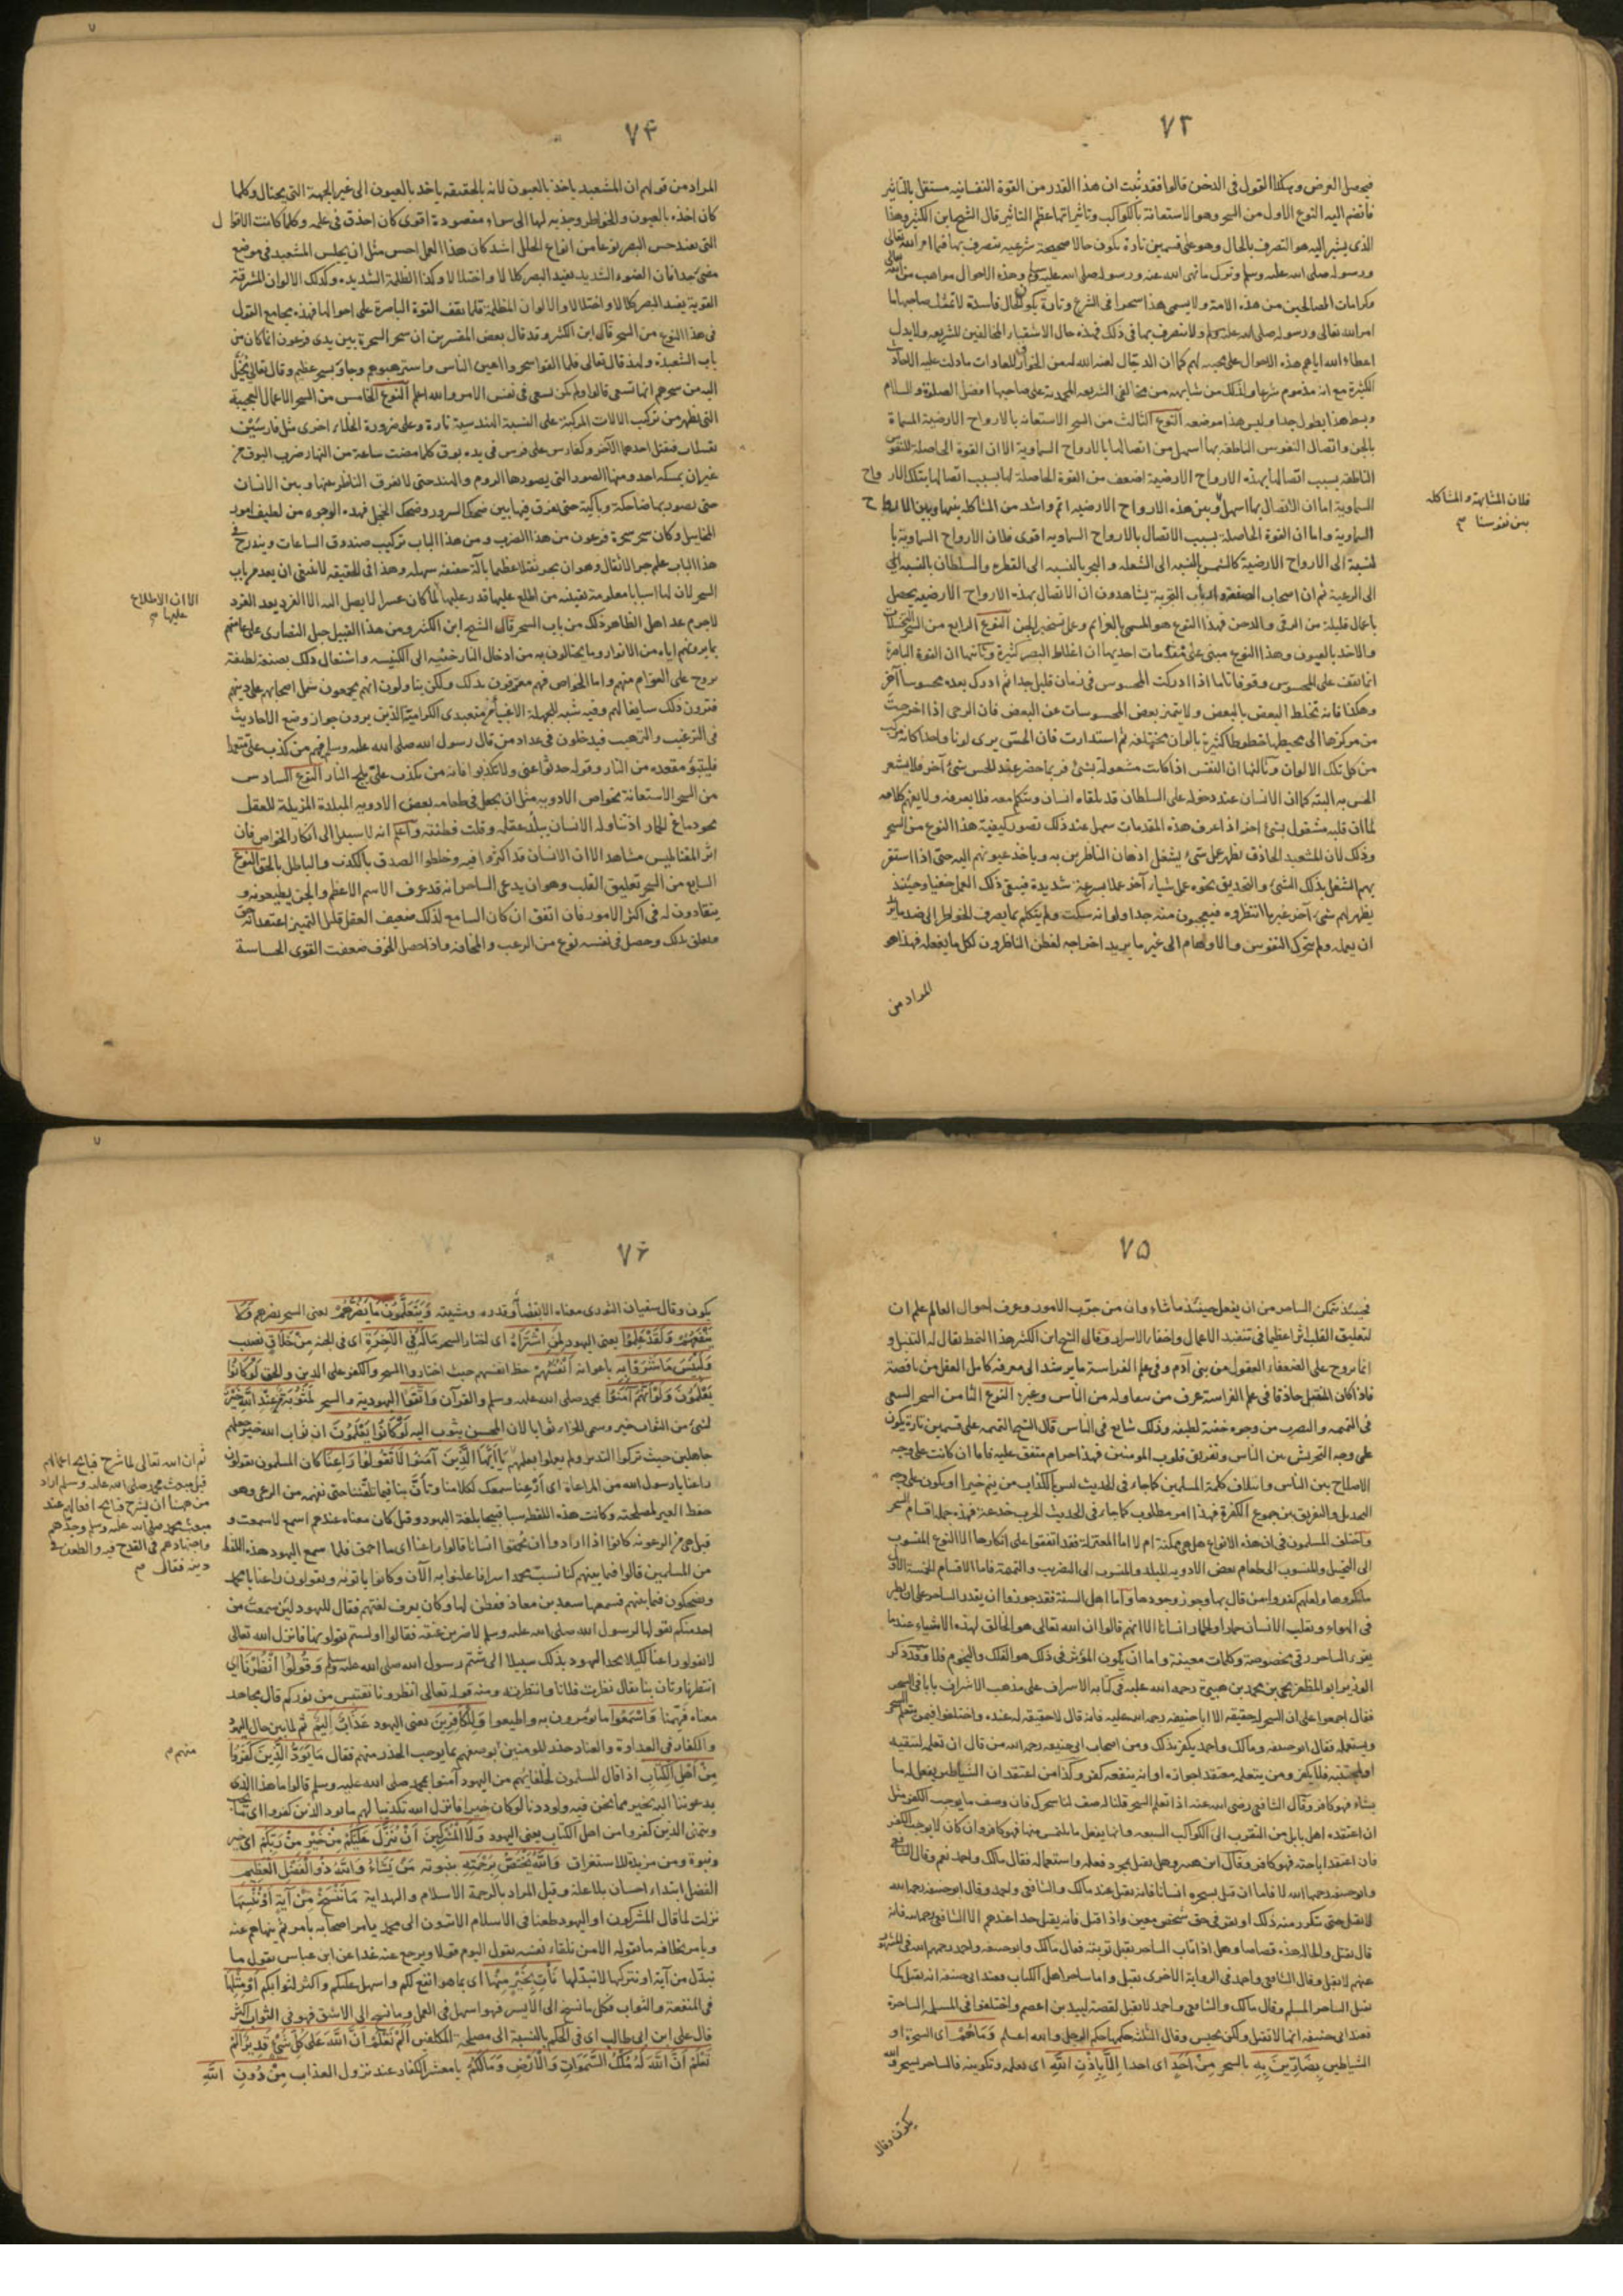 ٧٣
فيحصل الغرض وهكذا القول في الدخن قالوا فقد ثبت ان هذا القدر من القوة النفسانيه مستقل بالتاثير
فانضم اليه النوع الاول من السحر وهو الاستعانة بالكواكب وتاثيراتها عظم التاثير قال الشيخ ابن الكثير وهذا
الذي يشير اليه هو التصرف بالحال وهو على قسمين تارة يكون حالا صحيحة شرعيه يتصرف بها فيما امر الله تعالى
ورسوله صلى الله عليه وسلم وترك ما نهى الله عنه ورسوله صلى الله عليه وسلم وهذه الاحوال مواهب من الله تعالى
وكرامات الصالحين من هذه الامة ولا يسمى هذا سحرا في الشرع وتارة يكون الحال فاسدة لا تمتثل صاحبها ما
امر الله تعالى ورسوله صلى الله عليه وسلم ولا يتصرف بها في ذلك فهذه حال الاشقياء المخالفين للشريعه ولا يدل
اعطاء الله اياهم هذه الاحوال على محبته لهم كما ان الدجال لعنه الله له من الخوارق للعادات ما دلت عليه الاحاديث
الكثيرة مع انه مذموم شرعا وكذلك من شابهه من مخالفي الشريعه المحمدية على صاحبها افضل الصلوة والسلام
وبسط هذا يطول جدا وليس هذا موضعه النوع الثالث من السحر الاستعانه بالارواح الارضية المسماة
بالجن واتصال النفوس الناطقه بها اسهل من اتصالها بالارواح السماوية الا ان القوة الحاصلة للنفوس
الناطقة بسبب اتصالها بهذه الارواح الارضية اضعف من القوة الحاصلة لها بسبب اتصالها بتلك الارواح
السماوية اما ان الاتصال بها اسهل وبين هذه الارواح الارضيه اتم واشد من المشاكله بينها وبين الارواح
السماوية واما ان القوة الحاصلة بسبب الاتصال بالارواح السماويه اقوى فلان الارواح السماوية با
لنسبة الى الارواح الارضية كالشمس بالنسبه الى الشعله والبحر بالنسبه الى القطره والسلطان بالنسبه الى
الى الرعية ثم ان اصحاب الصنعة وارباب التجربة يشاهدون ان الاتصال بهذه الارواح الارضيه يحصل
باعمال قليلة من الرقى والدخن فهذا النوع هو المسمى بالعزايم وعمل تسخير الجن النوع الرابع من السحر التخيلات
والاخذ بالعيون وهذا النوع مبنى على مقدمات احديها ان اغلاط البصر كثيرة وثانيها ان القوة الباصرة
انما تقف على المحسوس وقوفا تاما اذا ادركت المحسوس في زمان قليل جدا ثم ادرك بعده محسوسا آخر
وهكذا فانه تختلط البعض بالبعض ولا يتميز بعض المحسوسات عن البعض فان الرحى اذا اخرجت
من مركزها الى محيطها خطوطا كثيرة بالوان مختلفه ثم استدارت فان الحس يرى لونا واحدا كانه مركب
من كل تلك الالوان وثالثها ان النفس اذا كانت مشغولة بشئ فربما حضر عند الحس شئ آخر فلا يشعر
الحس به البته كما ان الانسان عند دخوله على السلطان قد يلقاه انسان ويتكلم معه فلا يعرفه ولا يفهم كلامه
لما ان قلبه مشغول بشئ اخر اذا عرف هذه المقدمات سهل عند ذلك تصور كيفية هذا النوع من السحر
وذلك لان المشعبد الحاذق يظهر عمل شئ يشغل اذهان الناظرين به وياخذ عيونهم اليه حتى اذا استقر
بهم الشغل بذلك الشئ والتحديق نحوه عمل شيئا آخر عملا بسرعة شديدة فيبقى ذلك العمل خفيا وحينئذ
يظهر لهم شئ آخر غير ما انتظروه فيتعجبون منه جدا ولو انه سكت ولم يتكلم بما يصرف الخواطر الى ضد ما يريد
ان يعمله ولم يتحرك النفوس والاوهام الى غير ما يريد اخراجه لفطن الناظرون لكل ما يفعله فهذا هو
المراد من
فلان المشابهة والمشاكله
بين نفوسنا
٧٤
المراد من قولهم ان المشعبد ياخذ بالعيون لانه بالحقيقه ياخذ بالعيون الى غير الجهة التي يحتال وكلما
كان اخذه بالعيون والخواطر وجذبه لها الى سواء مقصودة اقوى كان احذق في عمله وكلما كانت الاقوال
التي تفيد حس البصر نوعا من انواع الخلل اشد كان هذا العمل احسن مثل ان يجلس المشعبد في موضع
مضئ جدا فان الضوء الشديد يفيد البصر كلالا واختلالا وكذا الظلمة الشديده وكذلك الالوان المشرقة
القوية يفيد البصر كلالا واختلالا والالوان المظلمة قلما تقف القوة الباصرة على احوالها فهذه مجامع القول
في هذا النوع من السحر قال ابن الكثير وقد قال بعض المفسرين ان سحر السحرة بين يدي فرعون انما كان من
باب الشعبدة ولهذا قال تعالى فلما القوا سحروا اعين الناس واسترهبوهم وجاؤا بسحر عظيم وقال تعالى يخيل
اليه من سحرهم انها تسعى قالوا ولم تكن تسعى في نفس الامر والله اعلم النوع الخامس من السحر الاعمال العجيبة
التي تظهر من تركيب الالات المركبة على النسبة الهندسية تارة وعلى ضرورة الخلاء اخرى مثل فارسين
يقتتلان فيقتل احدهما الآخر وكفارس على فرس في يده بوق كلما مضت ساعة من النهار ضرب البوق من
غير ان يمسكه احد ومنها الصور التي يصورها الروم والهند حتى لا يفرق الناظر بينها وبين الانسان
حتى يصور بها ضاحكة وباكية حتى يفرق فيها بين ضحك السرور وضحك الخجل فهذه الوجوه من لطيف امور
المخاييل وكان سحر سحرة فرعون من هذا الضرب ومن هذا الباب تركيب صندوق الساعات ويندرج في
هذا الباب علم جر الاثقال وهو ان يجر ثقلا عظيما بآلة خفيفه سهله وهذا في الحقيقه لا ينبغي ان يعد من باب
السحر لان لها اسبابا معلومة نفيسة من اطلع عليها قدر عليها لما كان عسرا لا يصل اليه الا الفرد بعد الفرد
لاجرم عد اهل الظاهر ذلك من باب السحر قال الشيخ ابن الكثير ومن هذا القبيل حيل النصارى على عامتهم
بما يرونهم اياه من الانوار وما يحتالون به من ادخال النار خفيه الى الكنيسه واشتعال ذلك بصنعة لطيفة
تروج على العوام منهم واما الخواص فهم معترفون بذلك ولكن يتاولون انهم يجمعون شمل اصحابهم على دينهم
فيرون ذلك سايغا لهم وفيه شبه للجهلة الاغبياء من متعبدى الكرامية الذين يرون جواز وضع الاحاديث
في الترغيب والترهيب فيدخلون في عداد من قال رسول الله صلى الله عليه وسلم فيهم من كذب علي متعمدا
فليتبؤ مقعده من النار وقوله حدثوا عني ولا تكذبوا فانه من يكذب علي يلج النار النوع السادس
من السحر الاستعانة بخواص الادويه مثل ان يجعل في طعامه بعض الادويه المبلدة المزيلة للعقل
نحو دماغ الحمار اذ تناوله الانسان يبلد عقله وقلت فطنته واعلم انه لا سبيل الى انكار الخواص فان
اثر المغناطيس مشاهد الا ان الانسان قد اكثروا فيه وخلطوا الصدق بالكذب والباطل بالحق النوع
السابع من السحر تعليق القلب وهو ان يدعى الساحر انه قد عرف الاسم الاعظم والجن يطيعونه و
ينقادون له في اكثر الامور فان اتفق ان كان السامع لذلك ضعيف العقل قليل التميز اعتقد انه حق
وتعلق بذلك وحصل في نفسه نوع من الرعب والمخافة واذا حصل الخوف ضعفت القوى الحساسة
الا ان الاطلاع
عليها
٧٥
فحينئذ يتمكن الساحر من ان يفعل حينئذ ما شاء وان من جرب الامور وعرف احوال العالم علم ان
لتعليق القلب اثرا عظيما في تنفيذ الاعمال واخفاء الاسرار وقال الشيخ ابن الكثير هذا النمط يقال له التنبل و
انما يروج على الضعفاء العقول من بني آدم وفي علم الفراسة ما يرشد الى معرفة كامل العقل من ناقصه
فاذا كان المنبل حاذقا في علم الفراسة عرف من ينقاد له من الناس وغيره النوع الثامن السحر السعي
في النميمه والتضريب من وجوه خفية لطيفة وذلك شايع في الناس قال الشيخ النميمه على قسمين تارة يكون
على وجه التحريش بين الناس وتفريق قلوب المومنين فهذا حرام متفق عليه فاما ان كانت على وجه
الاصلاح بين الناس وايتلاف كلمة المسلمين كما جاء في الحديث ليس بالكذاب من ينم خيرا او يكون على وجه
التخذيل والتفريق بين جموع الكفرة فهذا امر مطلوب كما جاء في الحديث الحرب خدعة فهذه جملة اقسام السحر
واختلف المسلمون في ان هذه الانواع هل هي ممكنة ام لا اما المعتزلة فقد اتفقوا على انكارها الا النوع المنسوب
الى التخييل والمنسوب الى طعام بعض الادويه المبلده والمنسوب الى التضريب والنميمة فاما الاقسام الخمسة الاول
فانكروها ولعلهم كفروا من قال بها وجوز وجودها واما اهل السنة فقد جوزوا ان يقدر الساحر على ان يطير
في الهواء ويقلب الانسان حمارا والحمار انسانا الا انهم قالوا ان الله تعالى هو الخالق لهذه الاشياء عند ما
يقرء الساحر رقى مخصوصة وكلمات معينة واما ان يكون المؤثر في ذلك هو الفلك والنجوم فلا وقد ذكر
الوزير ابو المظفر يحيى بن محمد بن هبيرة رحمه الله عليه في كتابه الاشراف على مذهب الاشراف بابا في السحر
فقال اجمعوا على ان السحر له حقيقه الا ابا حنيفه رحمه الله عليه فانه قال لا حقيقه له عنده واختلفوا فيمن يتعلم السحر
ويستعمله فقال ابو حنيفه ومالك واحمد يكفر بذلك ومن اصحاب ابي حنيفه رحمه الله من قال ان تعلمه ليتقيه
او ليجتنبه فلا يكفر ومن يتعلمه معتقدا جوازه او انه ينفعه كفر وكذا من اعتقد ان الشياطين يفعل له ما
يشاء فهو كافر وقال الشافعي رضى الله عنه اذا تعلم السحر قلنا له صف لنا سحرك فان وصف ما يوجب الكفر مثل
ان اعتقده اهل بابل من التقرب الى الكواكب السبعه وانها يفعل ما يلتمس منها فهو كافر وان كان لا يوجب الكفر
فان اعتقد اباحته فهو كافر وقال ابن هبيره وهل يقتل بمجرد فعله واستعماله فقال مالك واحمد نعم وقال الشافعي
وابو حنيفه رحمهما الله لا فاما ان قتل بسحره انسانا فانه يقتل عند مالك والشافعي واحمد وقال ابو حنيفه رحمه الله
لا يقتل حتى يتكرر منه ذلك او يقر في حق شخص معين واذا قتل فانه يقتل حدا عندهم الا الشافعي رحمه الله فانه
قال يقتل والحال هذه قصاصا وهل اذا تاب الساحر يقبل توبته فقال مالك وابو حنيفه واحمد رحمهم الله في المشهور
عنهم لا يقبل وقال الشافعي واحمد في الرواية الاخرى يقبل واما ساحر اهل الكتاب فعند ابي حنيفه انه يقتل كما
يقتل الساحر المسلم وقال مالك والشافعي واحمد لا يقتل لقصة لبيد بن اعصم واختلفوا في المسلمة الساحرة
فعند ابي حنيفه انها لا تقتل ولكن يحبس وقال الثلثة حكمها حكم الرجل والله اعلم وَمَا هُمْ اى السحرة او
الشياطين بِضَارِّينَ بِهِ بالسحر مِنْ اَحَدٍ اى احدا اِلَّا بِاِذْنِ اللّٰهِ اى بعلمه وتكوينه فالساحر يسحر والله
يكون وقال
٧٦
يكون وقال سفيان الثورى معناه الا بقضائه وقدره ومشيته وَيَتَعَلَّمُونَ مَا يَضُرُّهُمْ يعنى السحر يضرهم وَلَا
يَنْفَعُهُمْ وَلَقَدْ عَلِمُوا يعنى اليهود لَمَنِ اشْتَرَاهُ اى اختار السحر مَالَهُ فِي الْآخِرَةِ اى في الجنة مِنْ خَلَاقٍ نصيب
وَلَبِئْسَ مَا شَرَوْا بِهِ باعوا به اَنْفُسَهُمْ حظ انفسهم حيث اختاروا السحر والكفر على الدين والحق لَوْ كَانُوا
يَعْلَمُونَ وَلَوْ اَنَّهُمْ اٰمَنُوا بمحمد صلى الله عليه وسلم والقرآن وَاتَّقَوْا اليهودية والسحر لَمَثُوبَةٌ مِنْ عِنْدِ اللّٰهِ خَيْرٌ
لشئ من الثواب خير وسمى الجزاء ثوابا لان المحسن يثوب اليه لَوْ كَانُوا يَعْلَمُونَ ان ثواب الله خير جعلهم
جاهلين حيث تركوا التدبر ولم يعملوا بعلمهم يَا اَيُّهَا الَّذِينَ آمَنُوا لَا تَقُولُوا رَاعِنَا كان المسلمون يقولون
راعنا يا رسول الله من المراعاة اى اَرْعِنا سمعك لكلامنا وتَأَنَّ بنا فيما تلقننا حتى نفهمه من الرعى وهو
حفظ الغير لمصلحته وكانت هذه اللفظ سبا قبيحا بلغة اليهود وقيل كان معناه عندهم اسمع لا سمعت و
قيل هى من الرعونه كانوا اذا ارادوا ان يحمقوا انسانا قالوا راعنا اى يا احمق فلما سمع اليهود هذه اللفظ
من المسلمين قالوا فيما بينهم كنا نسب محمدا سرا فاعلنوا به الآن وكانوا ياتونه ويقولون راعنا يا محمد
ويضحكون فيما بينهم فسمعها سعد بن معاذ ففطن لها وكان يعرف لغتهم فقال لليهود لئن سمعت من
احد منكم يقولها لرسول الله صلى الله عليه وسلم لاضربن عنقه فقالوا اولستم تقولونها فانزل الله تعالى
لا تقولوا راعنا لكيلا يجد اليهود بذلك سبيلا الى شتم رسول الله صلى الله عليه وسلم وَقُولُوا انْظُرْنَا اى
انتظرنا وتأن بنا يقال نظرت فلانا وانتظرته ومنه قوله تعالى انظرونا نقتبس من نوركم قال مجاهد
معناه فَهِّمْنا وَاسْمَعُوا ما تومرون به واطيعوا وَلِلْكَافِرِينَ يعنى اليهود عَذَابٌ اَلِيمٌ ثم لما بين حال اليهود
والكفار في العداوة والعناد حذر للمومنين ووصفهم بما يوجب الحذر منهم فقال مَا يَوَدُّ الَّذِينَ كَفَرُوا
مِنْ اَهْلِ الْكِتَابِ اذا قال المسلمون لحلفايهم من اليهود آمنوا بمحمد صلى الله عليه وسلم قالوا ما هذا الذى
يدعوننا اليه بخير مما نحن فيه ولوددنا لو كان خيرا فانزل الله تكذيبا لهم ما يود الذين كفروا اى ما يحب
ويتمنى الذين كفروا من اهل الكتاب يعنى اليهود وَلَا الْمُشْرِكِينَ اَنْ يُنَزَّلَ عَلَيْكُمْ مِنْ خَيْرٍ مِنْ رَبِّكُمْ اى خير
ونبوة ومن مزيدة للاستغراق وَاللّٰهُ يَخْتَصُّ بِرَحْمَتِهِ بنبوته مَنْ يَشَاءُ وَاللّٰهُ ذُو الْفَضْلِ الْعَظِيمِ
الفضل ابتداء احسان بلا علة وقيل المراد بالرحمة الاسلام والهداية مَا نَنْسَخْ مِنْ آيَةٍ اَوْ نُنْسِهَا
نزلت لما قال المشركون او اليهود طعنا في الاسلام الا ترون الى محمد يامر اصحابه بامر ثم ينهاهم عنه
ويامر بخلافه ما يقوله الا من تلقاء نفسه يقول اليوم قولا ويرجع عنه غدا عن ابن عباس يقول ما
نبدل من آية او نتركها لا نبدلها نَأْتِ بِخَيْرٍ مِنْهَا اى بما هو انفع لكم واسهل عليكم واكثر لثوابكم اَوْ مِثْلِهَا
في المنفعة والثواب فكل ما نسخ الى الايسر فهو اسهل في العمل وما نسخ الى الاشق فهو في الثواب اكثر
قال على ابن ابى طالب اى في الحكم بالنسبة الى مصلحة المكلفين اَلَمْ تَعْلَمْ اَنَّ اللّٰهَ عَلَى كُلِّ شَيْءٍ قَدِيرٌ اَلَمْ
تَعْلَمْ اَنَّ اللّٰهَ لَهُ مُلْكُ السَّمٰوَاتِ وَالْاَرْضِ وَمَا لَكُمْ يا معشر الكفار عند نزول العذاب مِنْ دُونِ اللّٰهِ
ثم ان الله تعالى لما شرح قبايح اعمالهم
قبل مبعث محمد صلى الله عليه وسلم اراد
من ههنا ان يشرح قبايح افعالهم عند
مبعث محمد صلى الله عليه وسلم وجدهم
واجتهادهم في القدح فيه والطعن في
دينه فقال
منهم